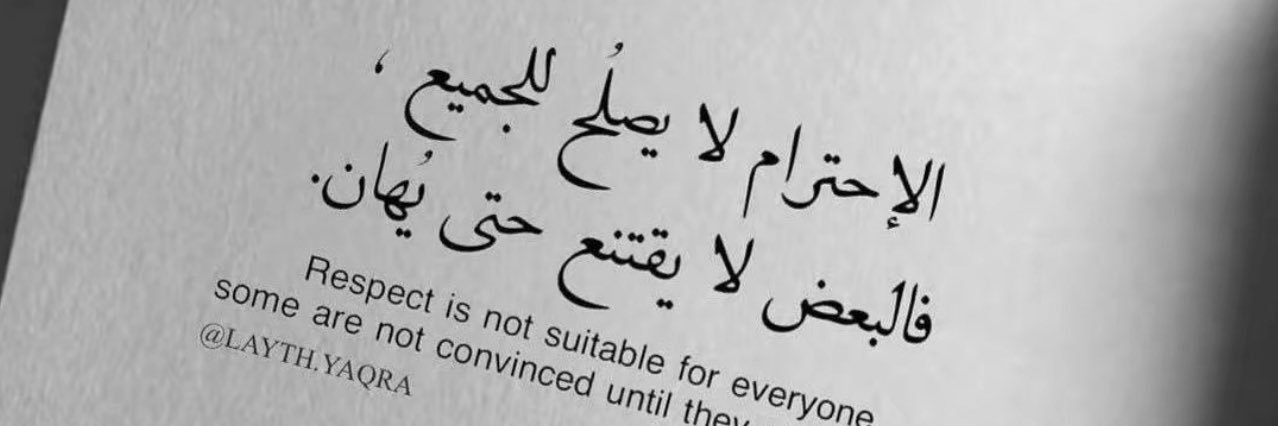 الإحترام لا يصلُح للجميع ،
فالبعض لا يقتنع حتى يُهان.
Respect is not suitable for everyone
some are not convinced until they
@LAYTH.YAQRA